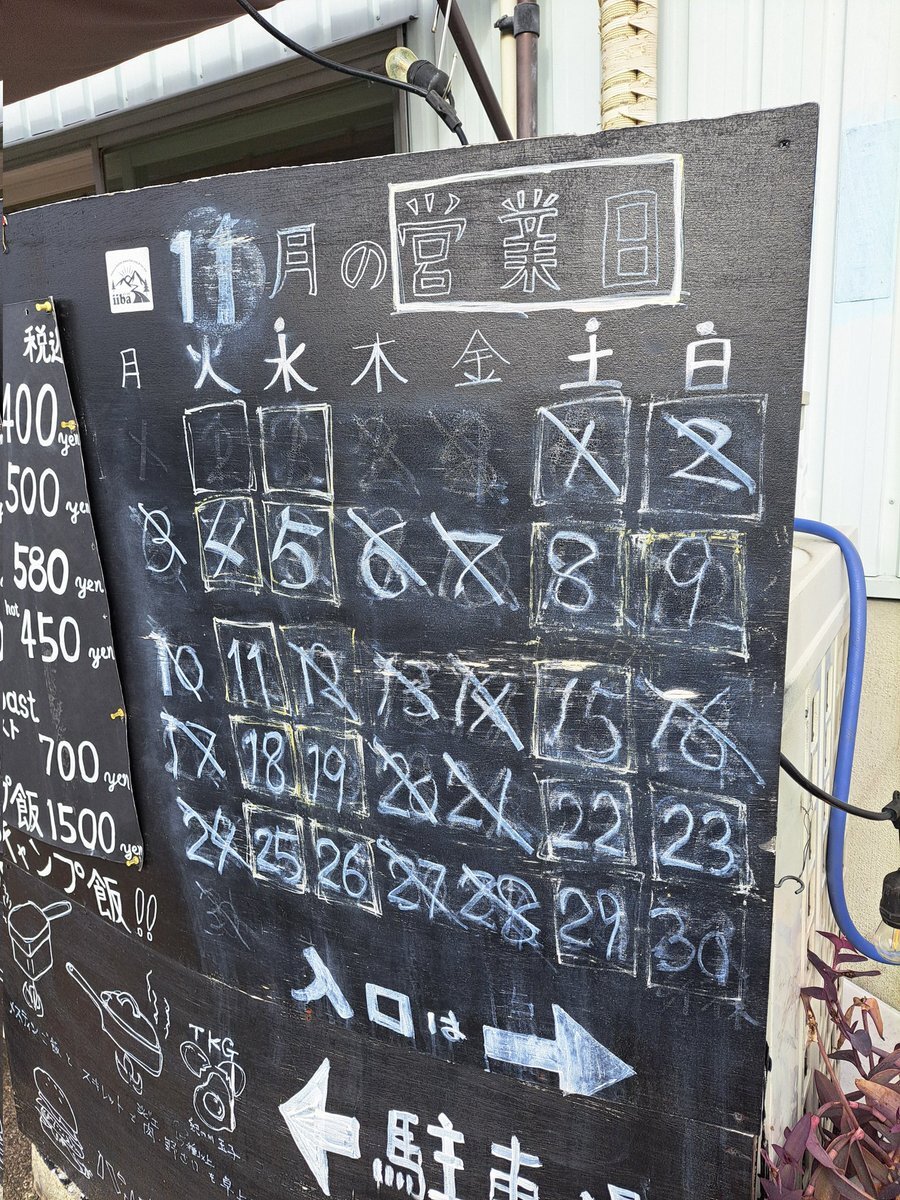 iiba
11月の営業日
月 火 水 木 金 土 日
1 2
3 4 5 6 7 8 9
10 11 12 13 14 15 16
17 18 19 20 21 22 23
24 25 26 27 28 29 30
税込
400 yen
500 yen
580 yen
hot 450 yen
oast
700 yen
プ飯 1500 yen
キャンプ飯!!
入口は →
TKG
← 駐車場